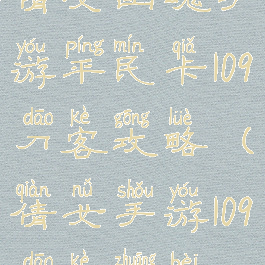 yóu píng mín qiǎ
游平民卡109
dāo kè gōng lüè
刀客攻略（
qiàn nǚ shǒu yóu
倩女手游109
dāo kè